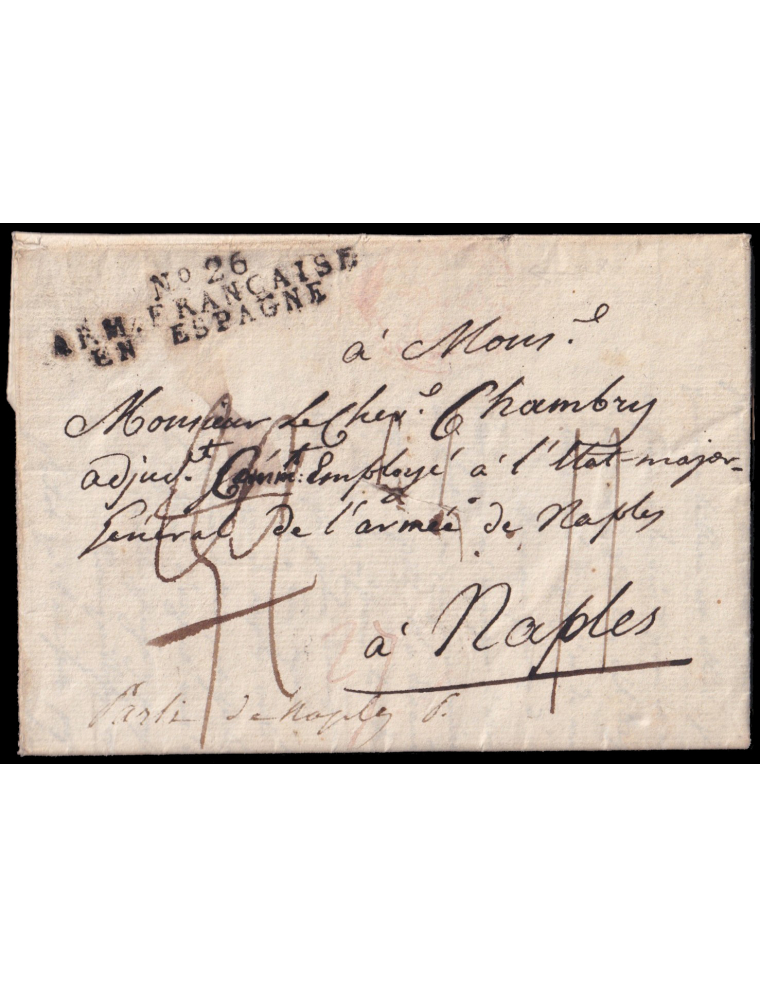 No 26
ARM. FRANÇAISE
EN ESPAGNE
à Mons.
Monsieur Le Cher. Chambry
adjud.t Comm.t Employé à l'Etat-major-
Général de l'armée de Naples
à Naples
Parti de Naples
27